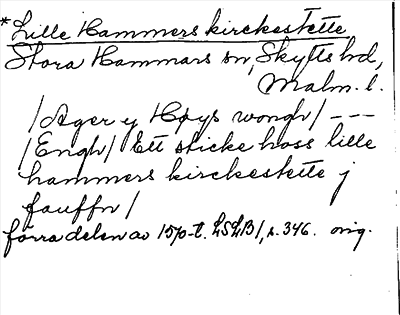 *Lille Hammers kirckestette
Stora Hammars sn, Skytts hd,
Malm. l.
/Ager y Høys wongh/ ---
/Engh/ Ett sticke hoss lille
hammers kirckestette j
fauffn/
förra delen av 1570-t. LSLB1, s. 346. orig.